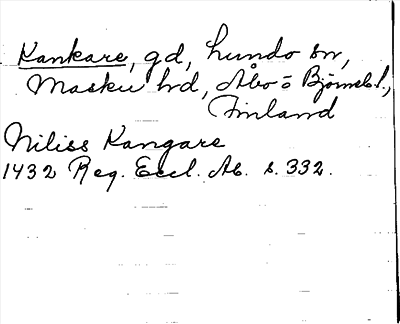 Kankare, gd, Lundo sn,
Masku hd, Åbo o Björneb. l.,
Finland
Niliss Kangare
1432 Reg. Eccl. Ab. s. 332.